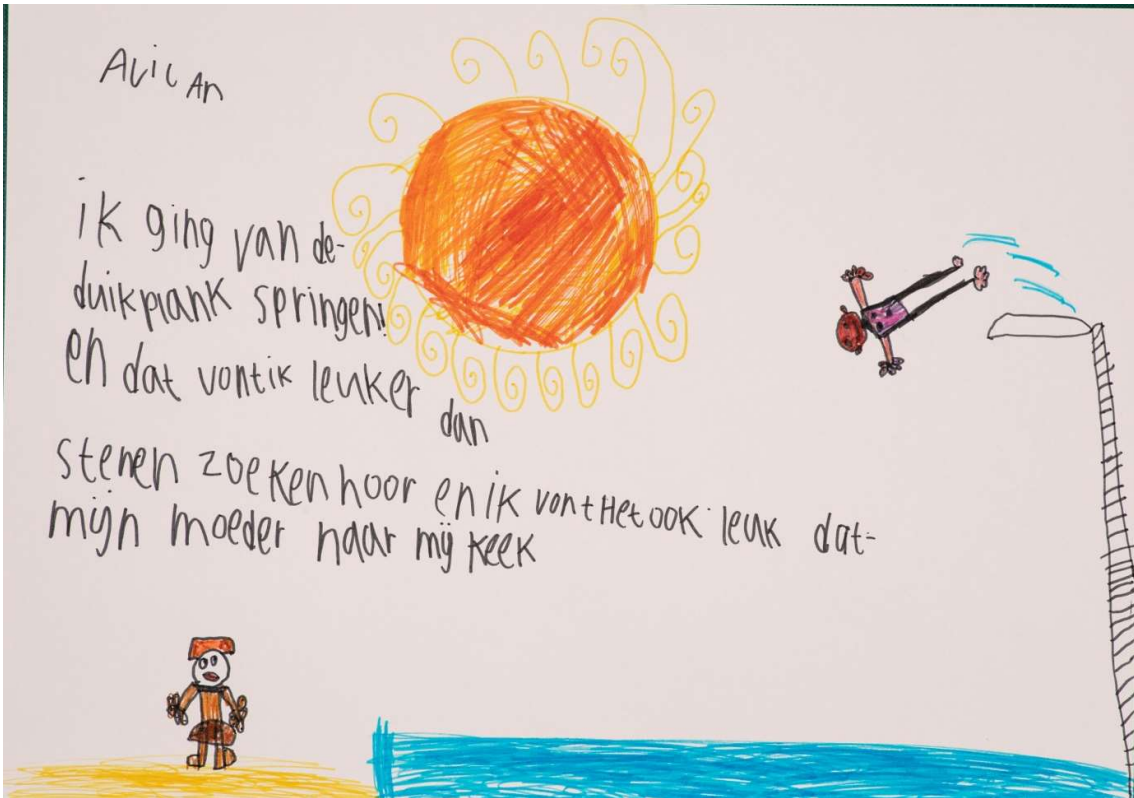 Avican
ik ging van de-
duikplank springen!
en dat vontik leuker dan
stenen zoeken hoor en ik vont Het ook leuk dat-
mijn moeder naar mij keek